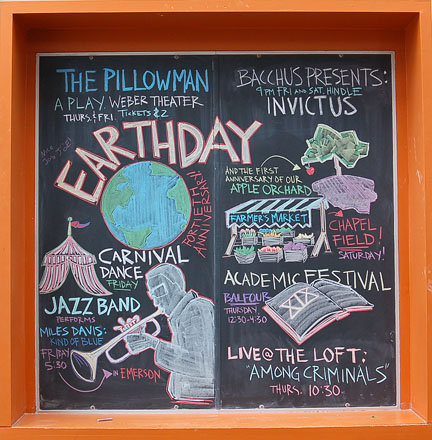 THE PILLOWMAN
A PLAY. WEBER THEATER
THURS. & FRI. TICKETS $2
EARTHDAY
FORTIETH
ANNIVERSARY
CARNIVAL
DANCE
FRIDAY
JAZZ BAND
PERFORMS
MILES DAVIS:
KIND OF BLUE
FRIDAY
5:30
IN EMERSON
BACCHUS PRESENTS:
9 PM FRI AND SAT, HINDLE
INVICTUS
AND THE FIRST
ANNIVERSARY OF OUR
APPLE ORCHARD
FARMER'S MARKET
CHAPEL
FIELD!
SATURDAY!
ACADEMIC FESTIVAL
BALFOUR
THURSDAY
12:30-4:30
XIX
LIVE@THE LOFT:
"AMONG CRIMINALS"
THURS. 10:30